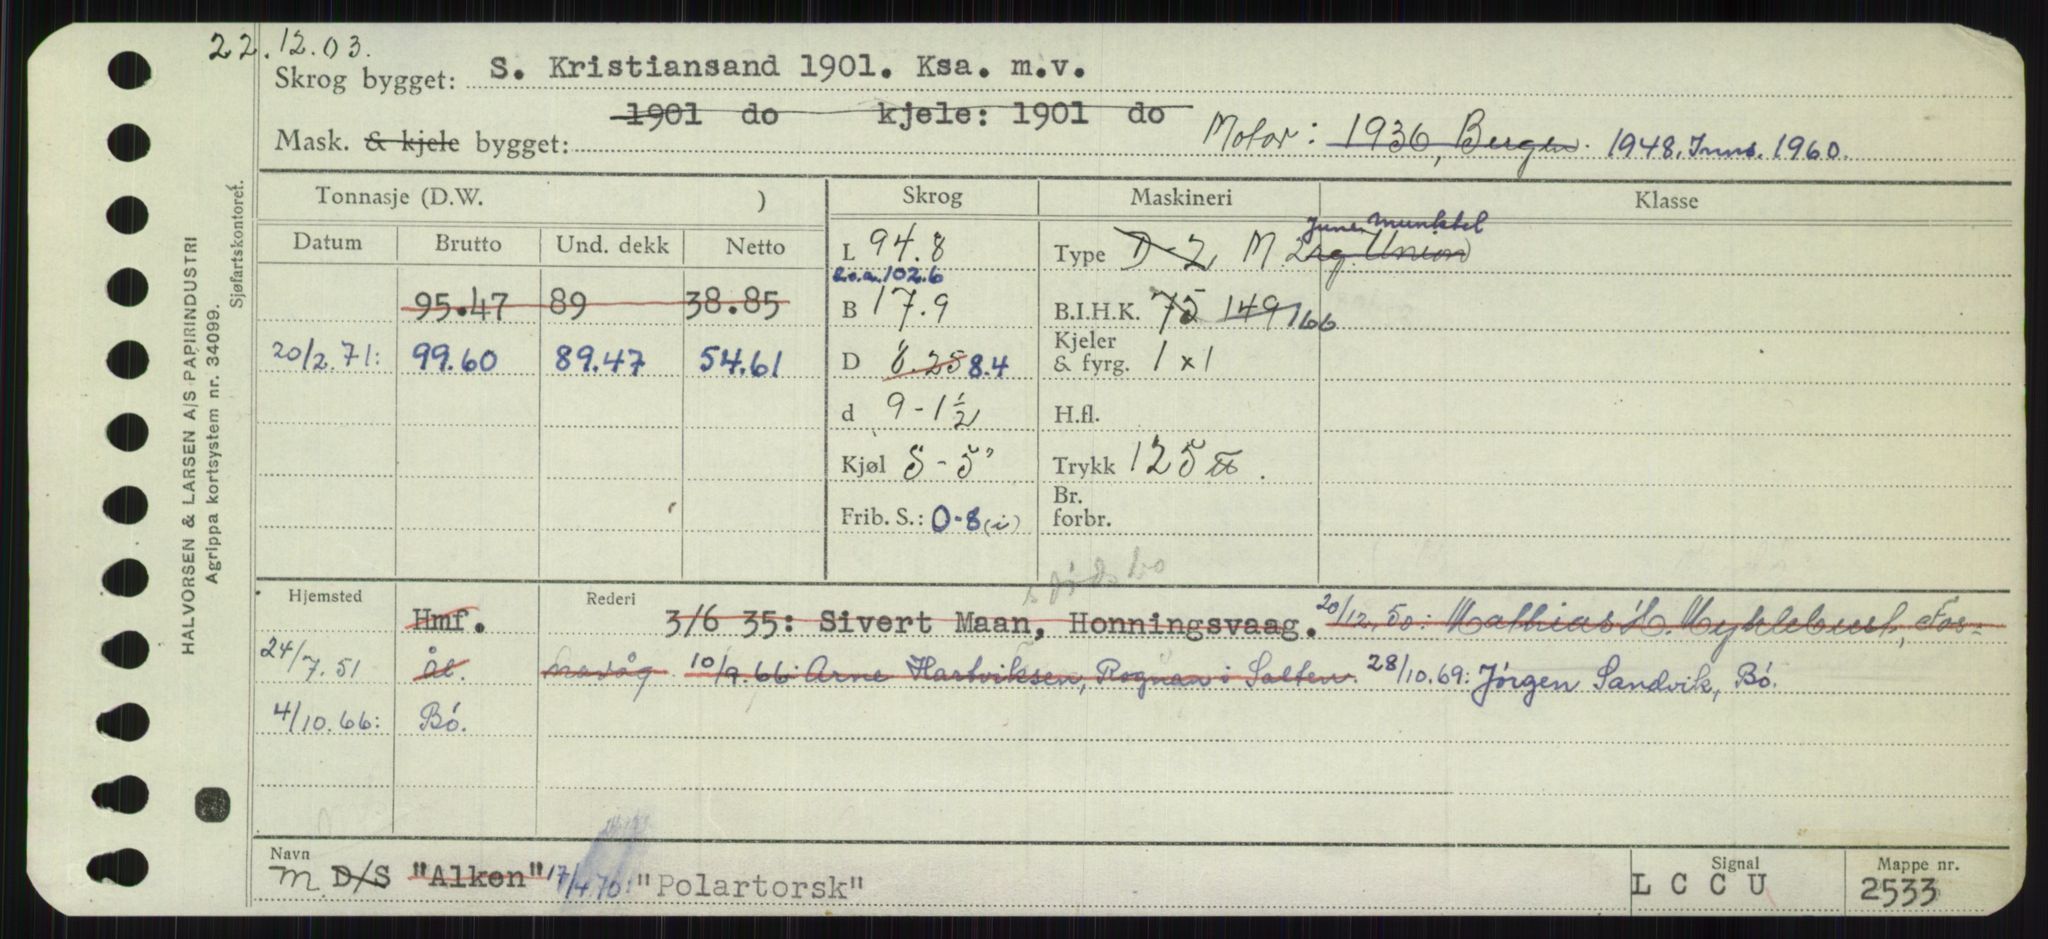 22.12.03.
Skrog bygget: S. Kristiansand 1901. Ksa. m.v.
1901 do kjele: 1901 do
Mask. & kjele bygget: Motor: 1936, Bergen. 1948. Inns. 1960.
Tonnasje (D.W. ) Skrog Maskineri Klasse
Datum Brutto Und. dekk Netto
L 94.8
Type D-2 M. Union
June Munktel
l.o.a. 102.6
95.47 89 38.85
B 17.9
B.I.H.K. 75 149 166
20/2.71: 99.60 89.47 54.61
D 8.25 8.4
Kjeler & fyrg. 1 x 1
d 9-1½
H.fl.
Kjøl S-5"
Trykk 125
Frib. S.: 0-8 (i)
Br. forbr.
Hjemsted Rederi
Hmf. 3/6 35: Sivert Maan, Honningsvaag. 20/12.50: Mathias H. Myklebust, Fos-
24/7.51 Ål. navåg 10/9.66: Arne Hartviksen, Rognan i Salten. 28/10.69: Jörgen Sandvik, Bö.
4/10.66: Bö.
Navn Signal Mappe nr.
M. D/S "Alken" 17/4 70: "Polartorsk" L C C U 2533
HALVORSEN & LARSEN A/S PAPIRINDUSTRI
Agrippa kortsystem nr. 34099.
Sjøfartskontoret.